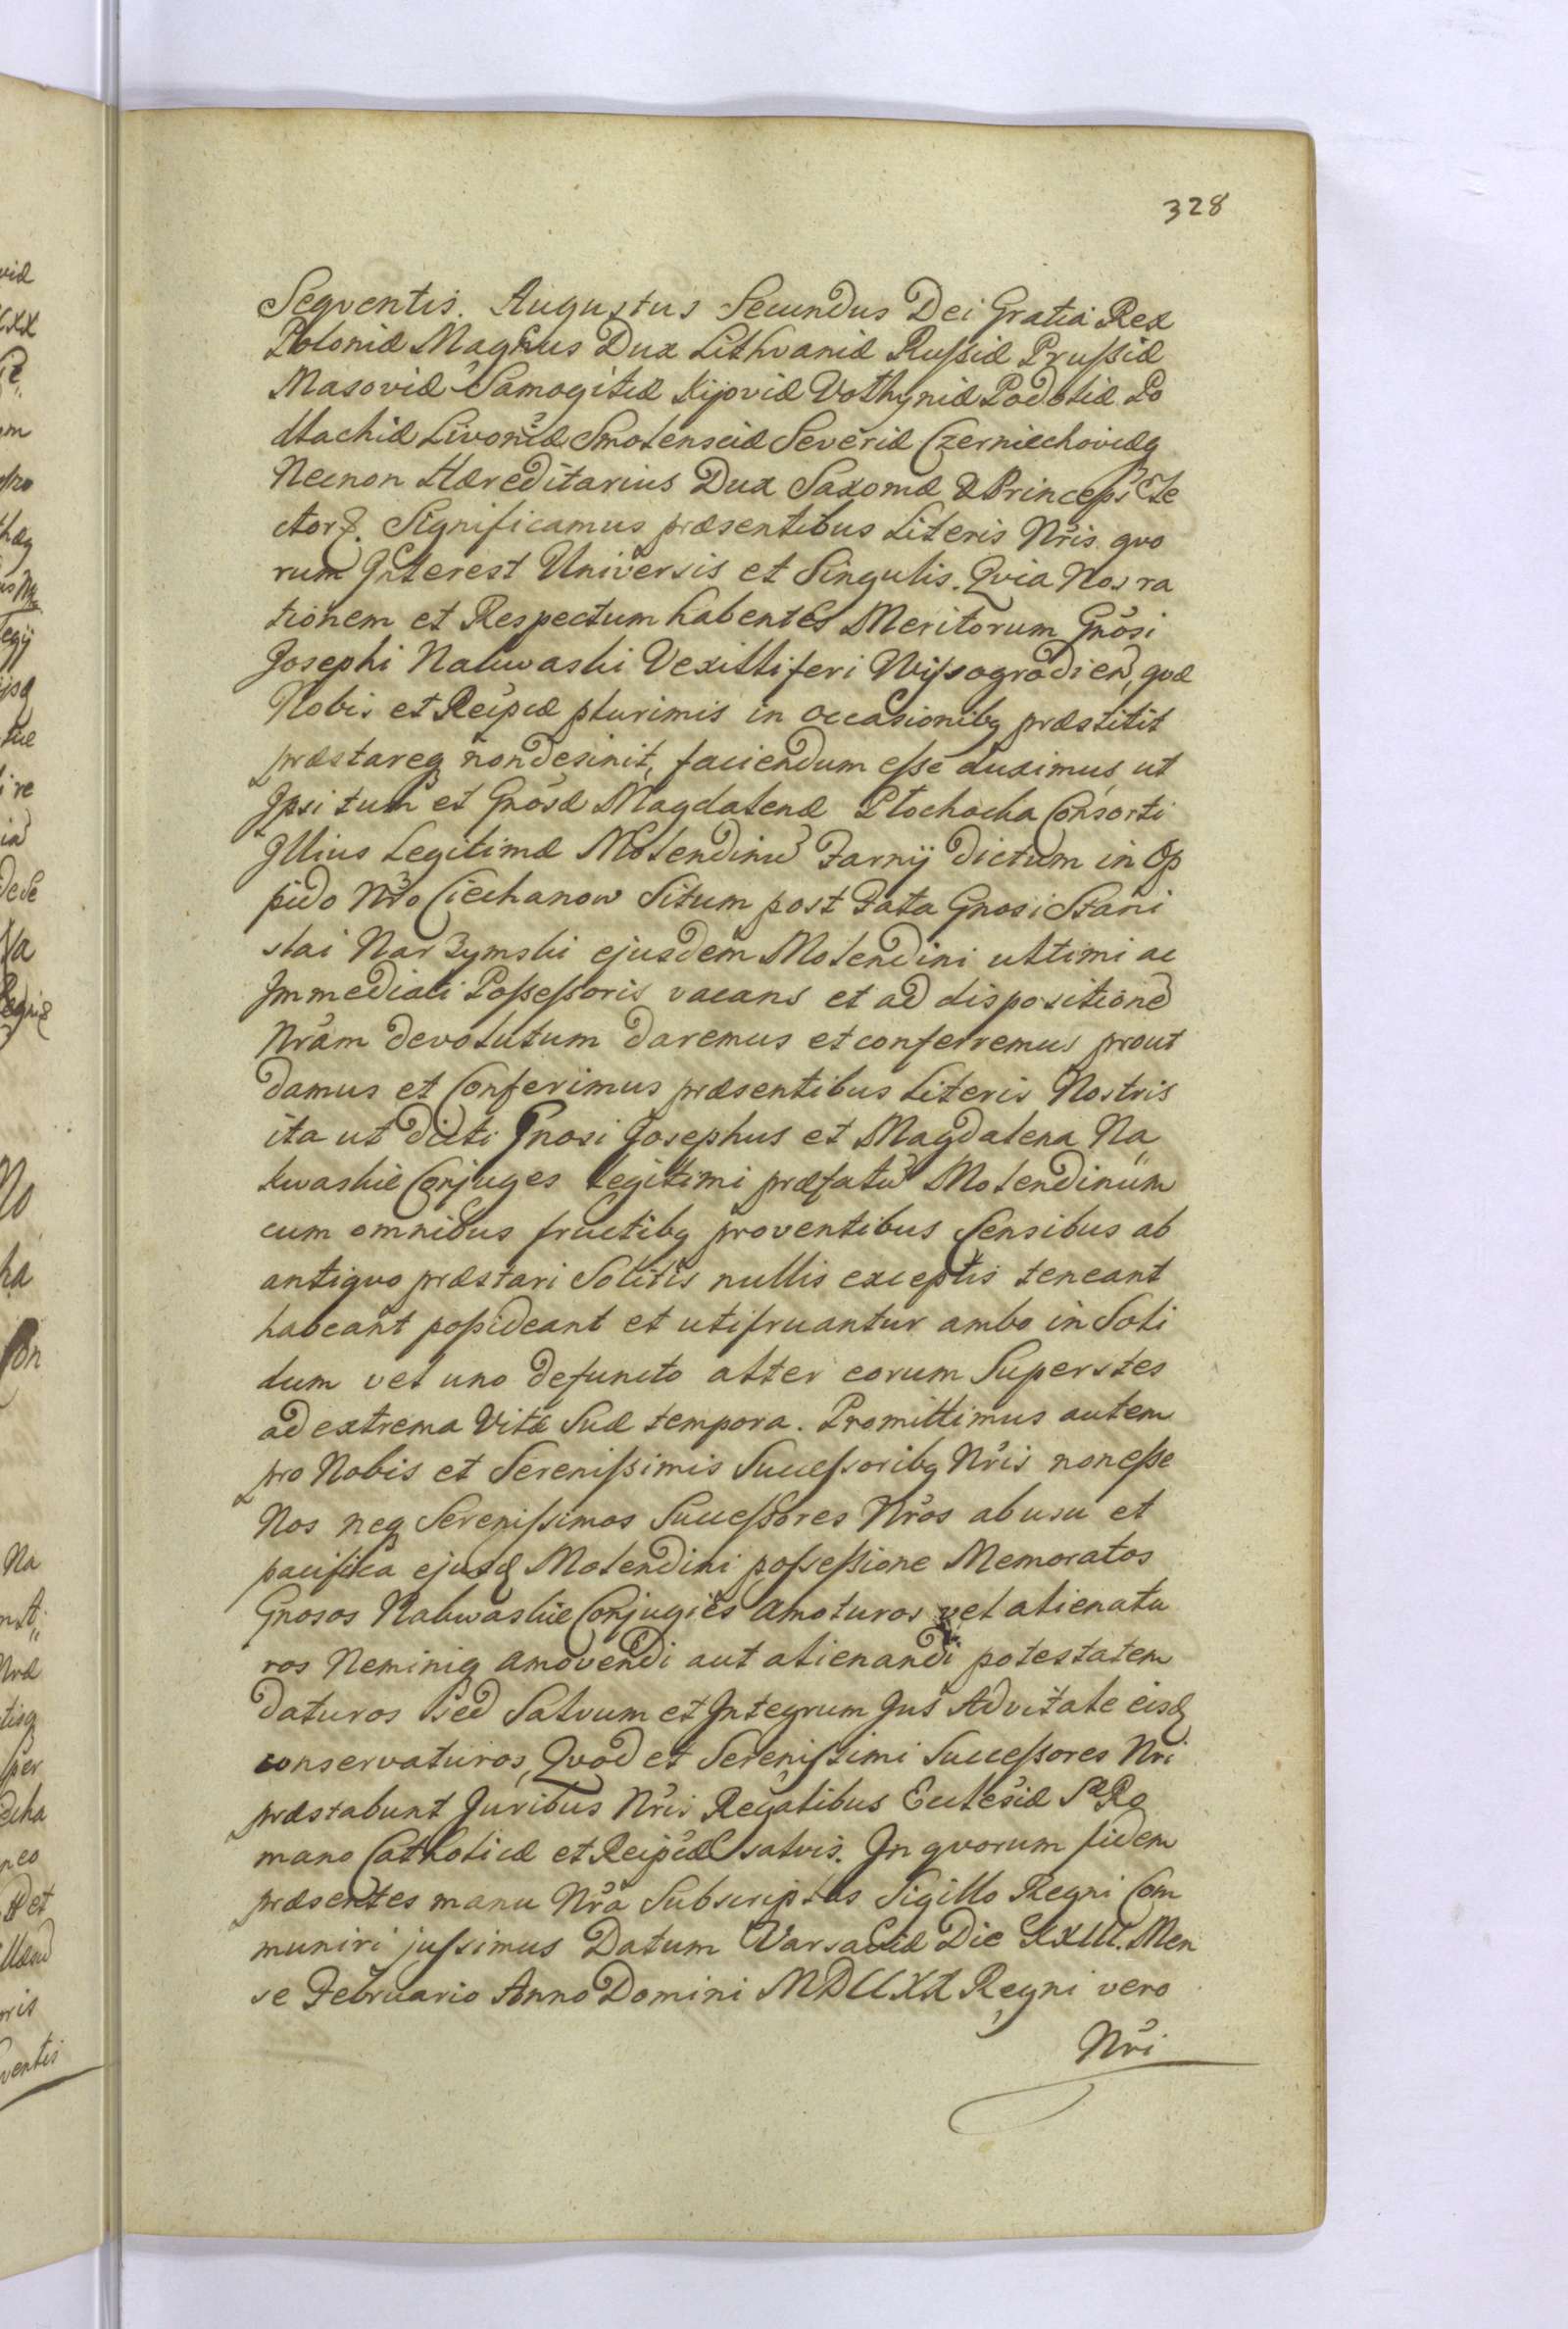 328
Seqventis. Augustus Secundus Dei Gratia Rex
Poloniæ Magnus Dux Lithvaniæ Rußiæ Prußiæ
Masoviæ Samogitiæ Kijoviæ Volhyniæ Podoliæ Po
dlachiæ Livoniæ Smolensciæ Severiæ Czerniechoviæq
Necnon Hæreditarius Dux Saxoniæ & Princeps Ele
ctor. Significamus præsentibus Literis Nr̃is qvo
rum Interest Universis et Singulis. Qvia Nos ra
tionem et Respectum habentes Meritorum Gnõsi
Josephi Nakwaski Vexilliferi Wißogrodien, qvæ
Nobis et Reipcæ plurimis in occasionibq præstitit
præstareq non desinit, faciendum eße duximus ut
Ipsi tum et Gnõsæ Magdalenæ Płochocka Consorti
Illius Legitimæ Molendinũ Farnÿ dictum in Op
pido Nr̃o Ciechanow Situm post Fata Gnosi Stani
slai Narzymski ejusdem Molendini ultimi ac
Immediati Poßeßoris vacans et ad dispositionẽ
Nr̃am devolutum daremus et conferremus prout
damus et Conferimus præsentibus Literis Nostris
ita ut dicti Gnosi Josephus et Magdalena Na
kwaskie Conjuges legitimi præfatũ Molendinum
cum omnibus fructibq proventibus Censibus ab
antiqvo præstari Solitis nullis exceptis teneant
habeant poßideant et utifruantur ambo in Soli
dum vel uno defuncto alter eorum Superstes
ad extrema Vitæ Suæ tempora. Promittimus autem
pro Nobis et Sereniſsimis Succeßoribq Nr̃is non eße
Nos neq Sereniſsimos Succeßores Nr̃os ab usu et
pacifica ejusd Molendini poßeßione Memoratos
Gnosos Nakwaskie Conjuges amoturos vel alienatu
ros Neminiq amovendi aut alienandi potestatem
daturos Sed Salvum et Integrum Jus Advitale eisd
conservaturos, Qvod et Sereniſsimi Succeßores Nr̃i
præstabunt Juribus Nr̃is Regalibus Ecclesiæ Sæ Ro
mano Catholicæ et Reipcæ salvis. In qvorum fidem
præsentes manu Nr̃a Subscriptas Sigillo Regni Com
muniri jußimus Datum Varsaviæ Die XXIII. Men
se Februario Anno Domini MDCCXX Regni vero
Nr̃i